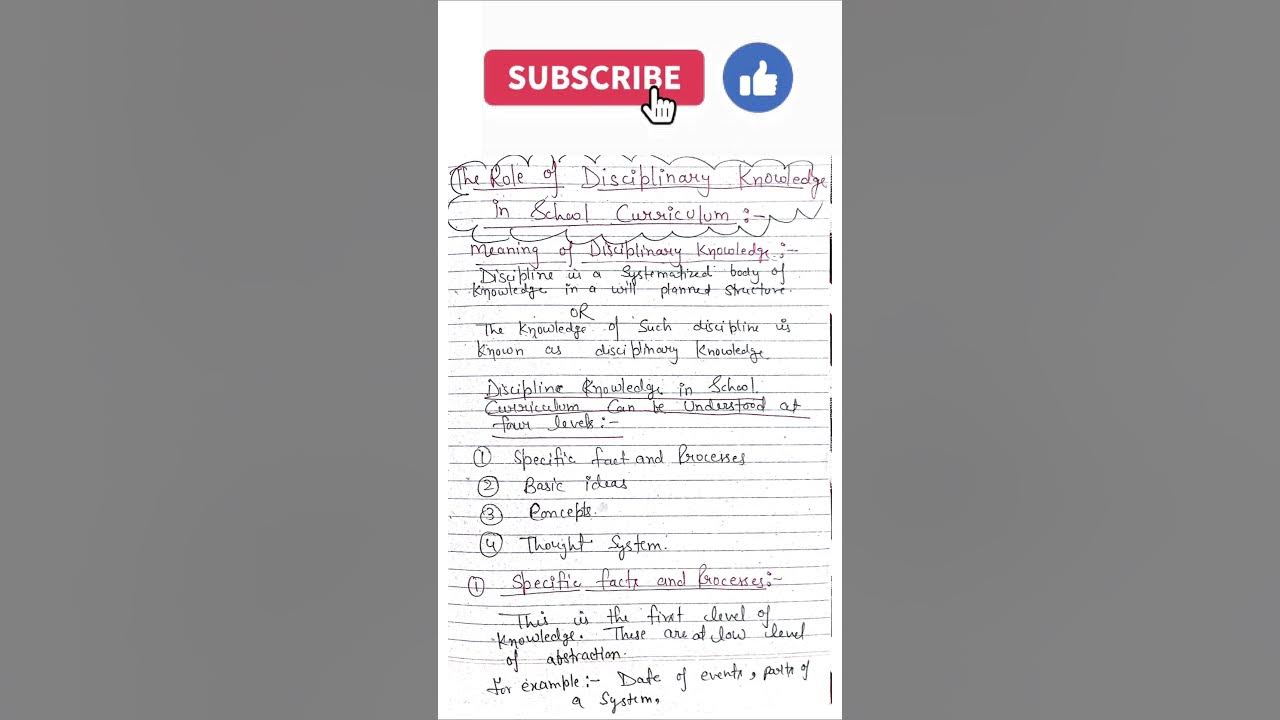 SUBSCRIBE
The Role of Disciplinary Knowledge
in School Curriculum:-
Meaning of Disciplinary Knowledge:-
Discipline is a Systematized body of
Knowledge in a will planned Structure.
OR
The Knowledge of Such discipline is
Known as disciplinary Knowledge
Discipline Knowledge in School
Curriculum Can be understood at
four levels:-
① Specific fact and Processes
② Basic ideas
③ Concepts.
④ Thought System.
① Specific facts and Processes:-
This is the first level of
Knowledge. These are at low level
of abstraction.
for example:- Date of events, parts of
a System,